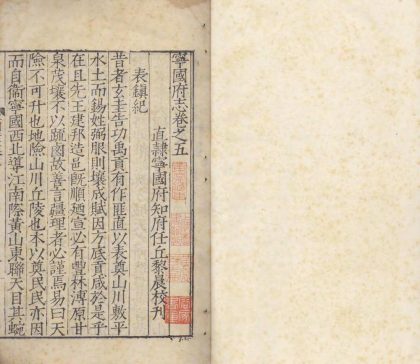 寧國府志卷之五
直隷寧國府知府任丘黎晨校刊
表鎮紀
昔者玄圭告功禹貢有作匪直以表奠山川敷平
水土而錫姓弼服則壤成賦因方底貢咸於是乎
在且先王建邦造邑既順廼宣必有豐林溥原甘
泉茂壤不以疏鹵故善言疆理者必謹焉易曰天
險不可升也地險山川丘陵也本以奠民民亦因
而自衞寧國西北導江南際黃山東聯天目其蜿